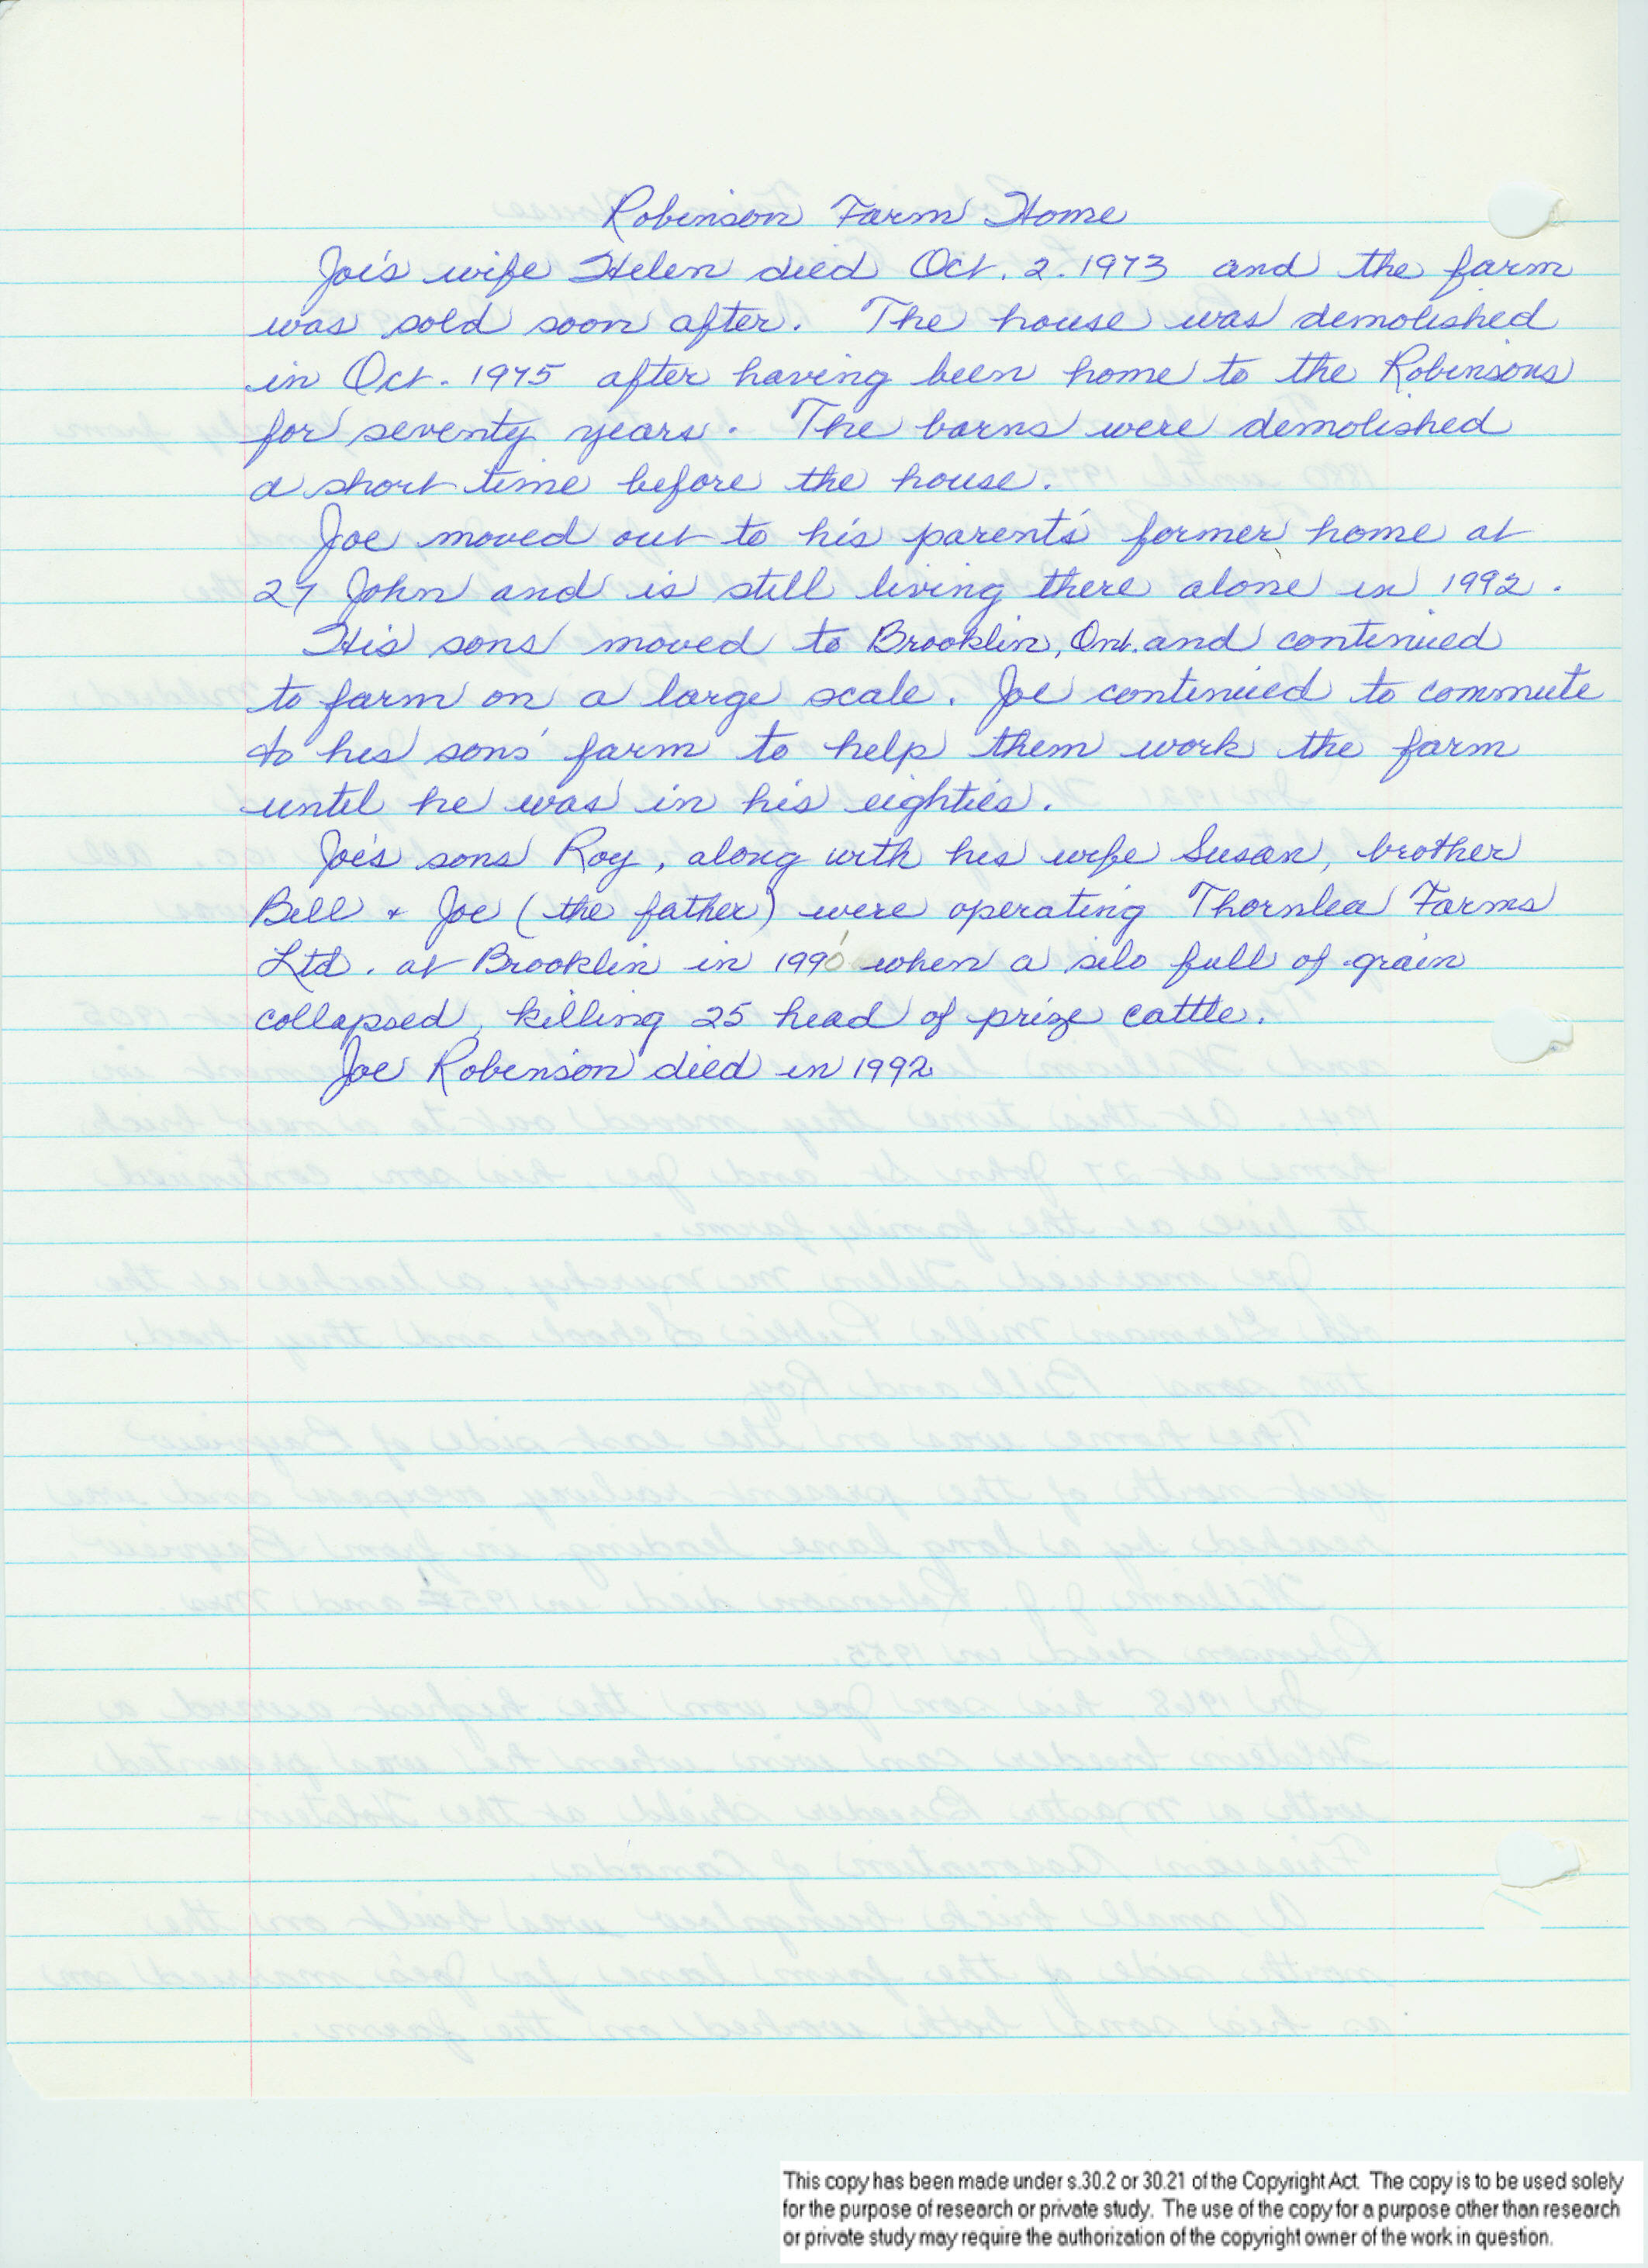 Robinson Farm Home
Joe's wife Helen died Oct. 2. 1973 and the farm
was sold soon after. The house was demolished
in Oct. 1975 after having been home to the Robinsons
for seventy years. The barns were demolished
a short time before the house.
Joe moved out to his parent's former home at
27 John and is still living there alone in 1992.
His sons moved to Brooklin, Ont. and continued
to farm on a large scale. Joe continued to commute
to his sons' farm to help them work the farm
until he was in his eighties.
Joe's sons Roy, along with his wife Susan, brother
Bill + Joe (the father) were operating Thornlea Farms
Ltd. at Brooklin in 1990 when a silo full of grain
collapsed, killing 25 head of prize cattle.
Joe Robinson died in 1992
This copy has been made under s.30.2 or 30.21 of the Copyright Act. The copy is to be used solely
for the purpose of research or private study. The use of the copy for a purpose other than research
or private study may require the authorization of the copyright owner of the work in question.